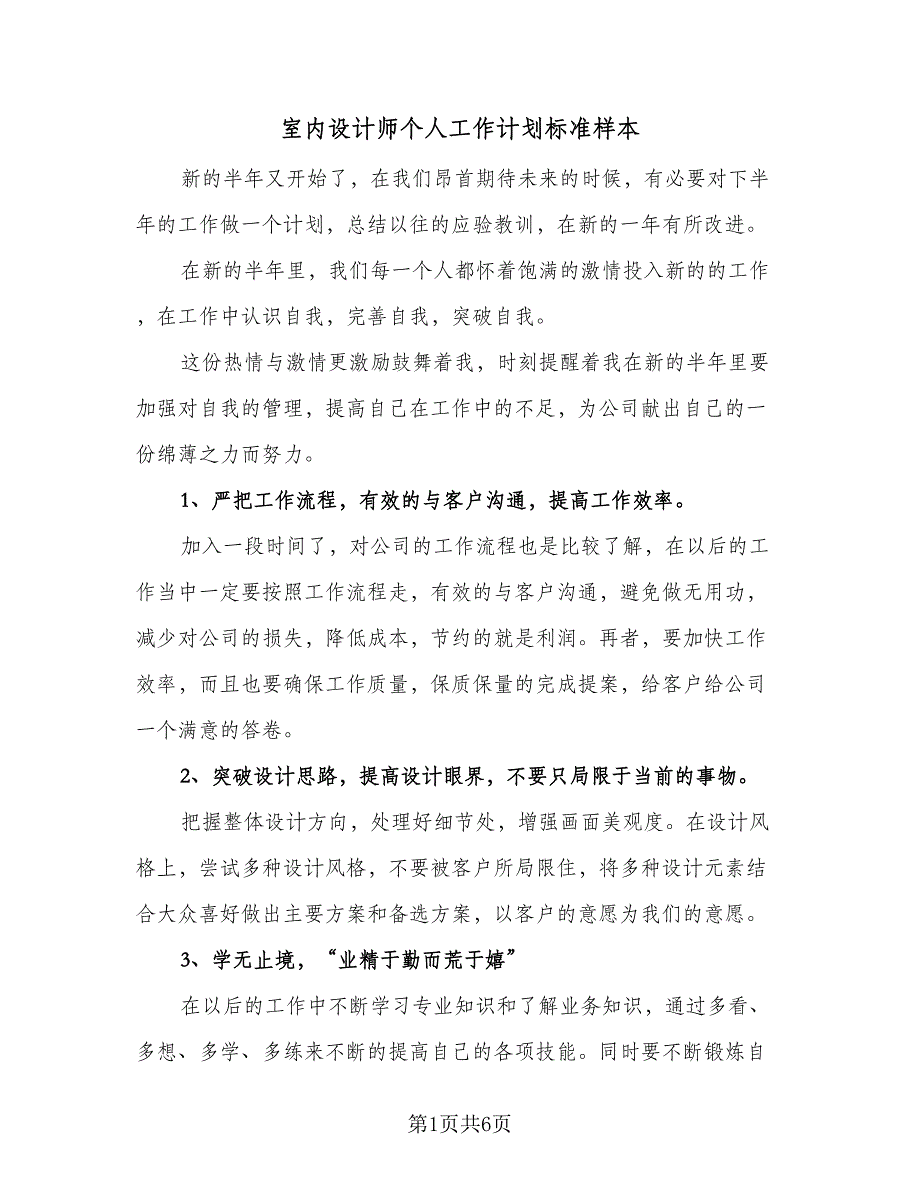 室内设计师个人工作计划标准样本
新的半年又开始了，在我们昂首期待未来的时候，有必要对下半
年的工作做一个计划，总结以往的应验教训，在新的一年有所改进。
在新的半年里，我们每一个人都怀着饱满的激情投入新的的工作
，在工作中认识自我，完善自我，突破自我。
这份热情与激情更激励鼓舞着我，时刻提醒着我在新的半年里要
加强对自我的管理，提高自己在工作中的不足，为公司献出自己的一
份绵薄之力而努力。
1、严把工作流程，有效的与客户沟通，提高工作效率。
加入一段时间了，对公司的工作流程也是比较了解，在以后的工
作当中一定要按照工作流程走，有效的与客户沟通，避免做无用功，
减少对公司的损失，降低成本，节约的就是利润。再者，要加快工作
效率，而且也要确保工作质量，保质保量的完成提案，给客户给公司
一个满意的答卷。
2、突破设计思路，提高设计眼界，不要只局限于当前的事物。
把握整体设计方向，处理好细节处，增强画面美观度。在设计风
格上，尝试多种设计风格，不要被客户所局限住，将多种设计元素结
合大众喜好做出主要方案和备选方案，以客户的意愿为我们的意愿。
3、学无止境，“业精于勤而荒于嬉”
在以后的工作中不断学习专业知识和了解业务知识，通过多看、
多想、多学、多练来不断的提高自己的各项技能。同时要不断锻炼自
第1页共6页